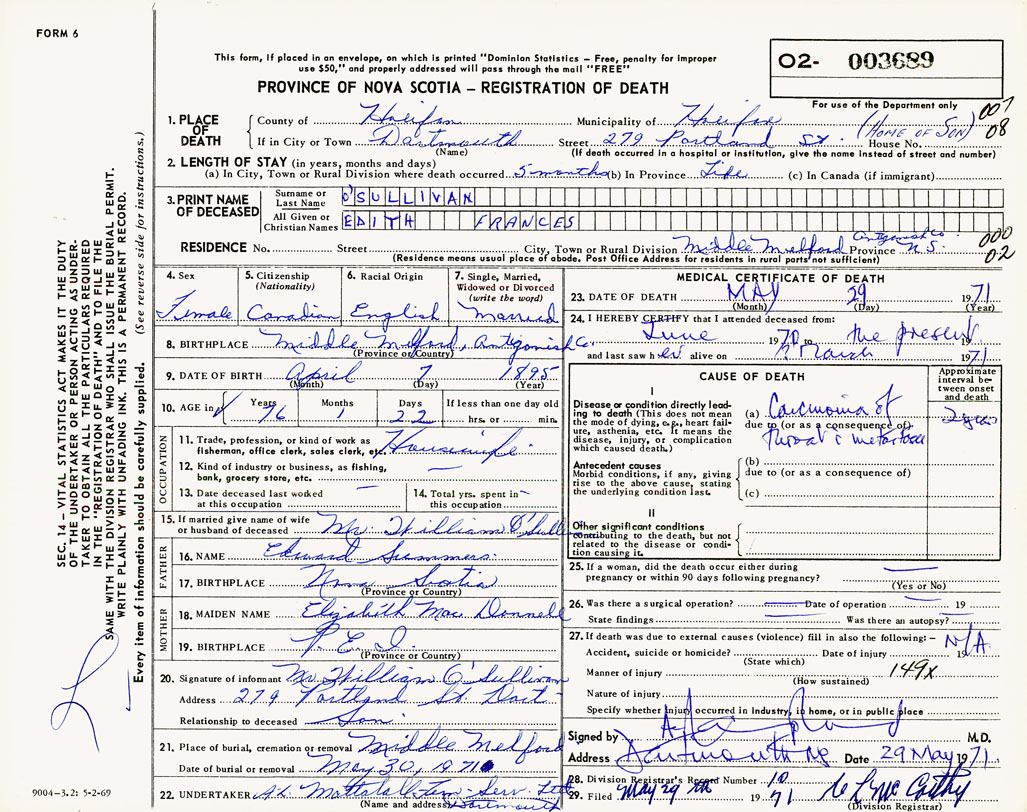 FORM 6
This form, if placed in an envelope, on which is printed "Dominion Statistics – Free, penalty for improper
use $50," and properly addressed will pass through the mail "FREE"
PROVINCE OF NOVA SCOTIA – REGISTRATION OF DEATH
O2- 003689
For use of the Department only
007
08
1. PLACE OF DEATH
County of Halifax Municipality of Halifax (HOME OF SON)
If in City or Town Dartmouth Street 279 Portland St. House No.
(Name) (If death occurred in a hospital or institution, give the name instead of street and number)
2. LENGTH OF STAY (in years, months and days)
(a) In City, Town or Rural Division where death occurred 5 months (b) In Province Life (c) In Canada (if immigrant)
3. PRINT NAME OF DECEASED
Surname or Last Name O'SULLIVAN
All Given or Christian Names EDITH FRANCES
RESIDENCE No. Street City, Town or Rural Division Middle Melford Antigonish Co. Province N.S.
000
02
(Residence means usual place of abode. Post Office Address for residents in rural parts not sufficient)
4. Sex
Female
5. Citizenship
(Nationality)
Canadian
6. Racial Origin
English
7. Single, Married, Widowed or Divorced
(write the word)
Married
8. BIRTHPLACE Middle Melford, Antigonish Co.
(Province or Country)
9. DATE OF BIRTH April 7 1895
(Month) (Day) (Year)
10. AGE in Years 76 Months 1 Days 22 If less than one day old hrs. or min.
OCCUPATION
11. Trade, profession, or kind of work as
fisherman, office clerk, sales clerk, etc. Housewife
12. Kind of industry or business, as fishing,
bank, grocery store, etc. —
13. Date deceased last worked
at this occupation —
14. Total yrs. spent in
this occupation —
15. If married give name of wife
or husband of deceased Mr. William O'Sullivan
FATHER
16. NAME Edward Summers.
17. BIRTHPLACE Nova Scotia
(Province or Country)
MOTHER
18. MAIDEN NAME Elizabeth Mac Donnell
19. BIRTHPLACE P.E.I.
(Province or Country)
20. Signature of informant Mr William O'Sullivan
Address 279 Portland St. Dart
Relationship to deceased Son.
21. Place of burial, cremation or removal Middle Melford
Date of burial or removal May 30, 1971
22. UNDERTAKER
(Name and address) Dartmouth
MEDICAL CERTIFICATE OF DEATH
23. DATE OF DEATH MAY 29 1971
(Month) (Day) (Year)
24. I HEREBY CERTIFY that I attended deceased from:
June 1970 to the present 19
and last saw her alive on March 1971
CAUSE OF DEATH
Approximate interval between onset and death
I
Disease or condition directly leading
to death (This does not mean
the mode of dying, e.g., heart failure,
asthenia, etc. It means the
disease, injury, or complication
which caused death.)
(a) Carcinoma of
due to (or as a consequence of)
throat
2 years
Antecedent causes
Morbid conditions, if any, giving
rise to the above cause, stating
the underlying condition last.
(b)
due to (or as a consequence of)
(c)
II
Other significant conditions
contributing to the death, but not
related to the disease or condition
causing it.
25. If a woman, did the death occur either during
pregnancy or within 90 days following pregnancy? —
(Yes or No)
26. Was there a surgical operation? — Date of operation — 19
State findings — Was there an autopsy? —
27. If death was due to external causes (violence) fill in also the following: – N/A
Accident, suicide or homicide? Date of injury 19
(State which)
Manner of injury 149X
(How sustained)
Nature of injury
Specify whether injury occurred in industry, in home, or in public place
Signed by M.D.
Address Dartmouth NS Date 29 May 1971
28. Division Registrar's Record Number 10
29. Filed May 29th 1971
(Division Registrar)
SEC. 14 – VITAL STATISTICS ACT MAKES IT THE DUTY
OF THE UNDERTAKER OR PERSON ACTING AS UNDERTAKER
TO OBTAIN ALL THE PARTICULARS REQUIRED
IN THE "REGISTRATION OF DEATH" AND TO FILE THE
SAME WITH THE DIVISION REGISTRAR WHO SHALL ISSUE THE BURIAL PERMIT.
WRITE PLAINLY WITH UNFADING INK. THIS IS A PERMANENT RECORD.
Every item of information should be carefully supplied. (See reverse side for instructions.)
9004-3.2: 5-2-69